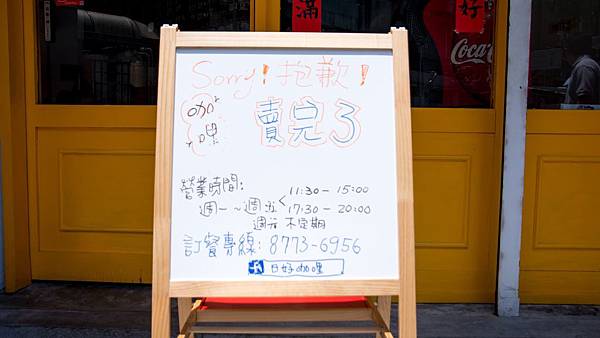 滿
Coca-Cola
Sorry! 抱歉!
咖
哩
賣完3
營業時間:
週一~週五< 11:30-15:00
17:30-20:00
週六 不定期
訂餐專線: 8773-6956
日好咖哩